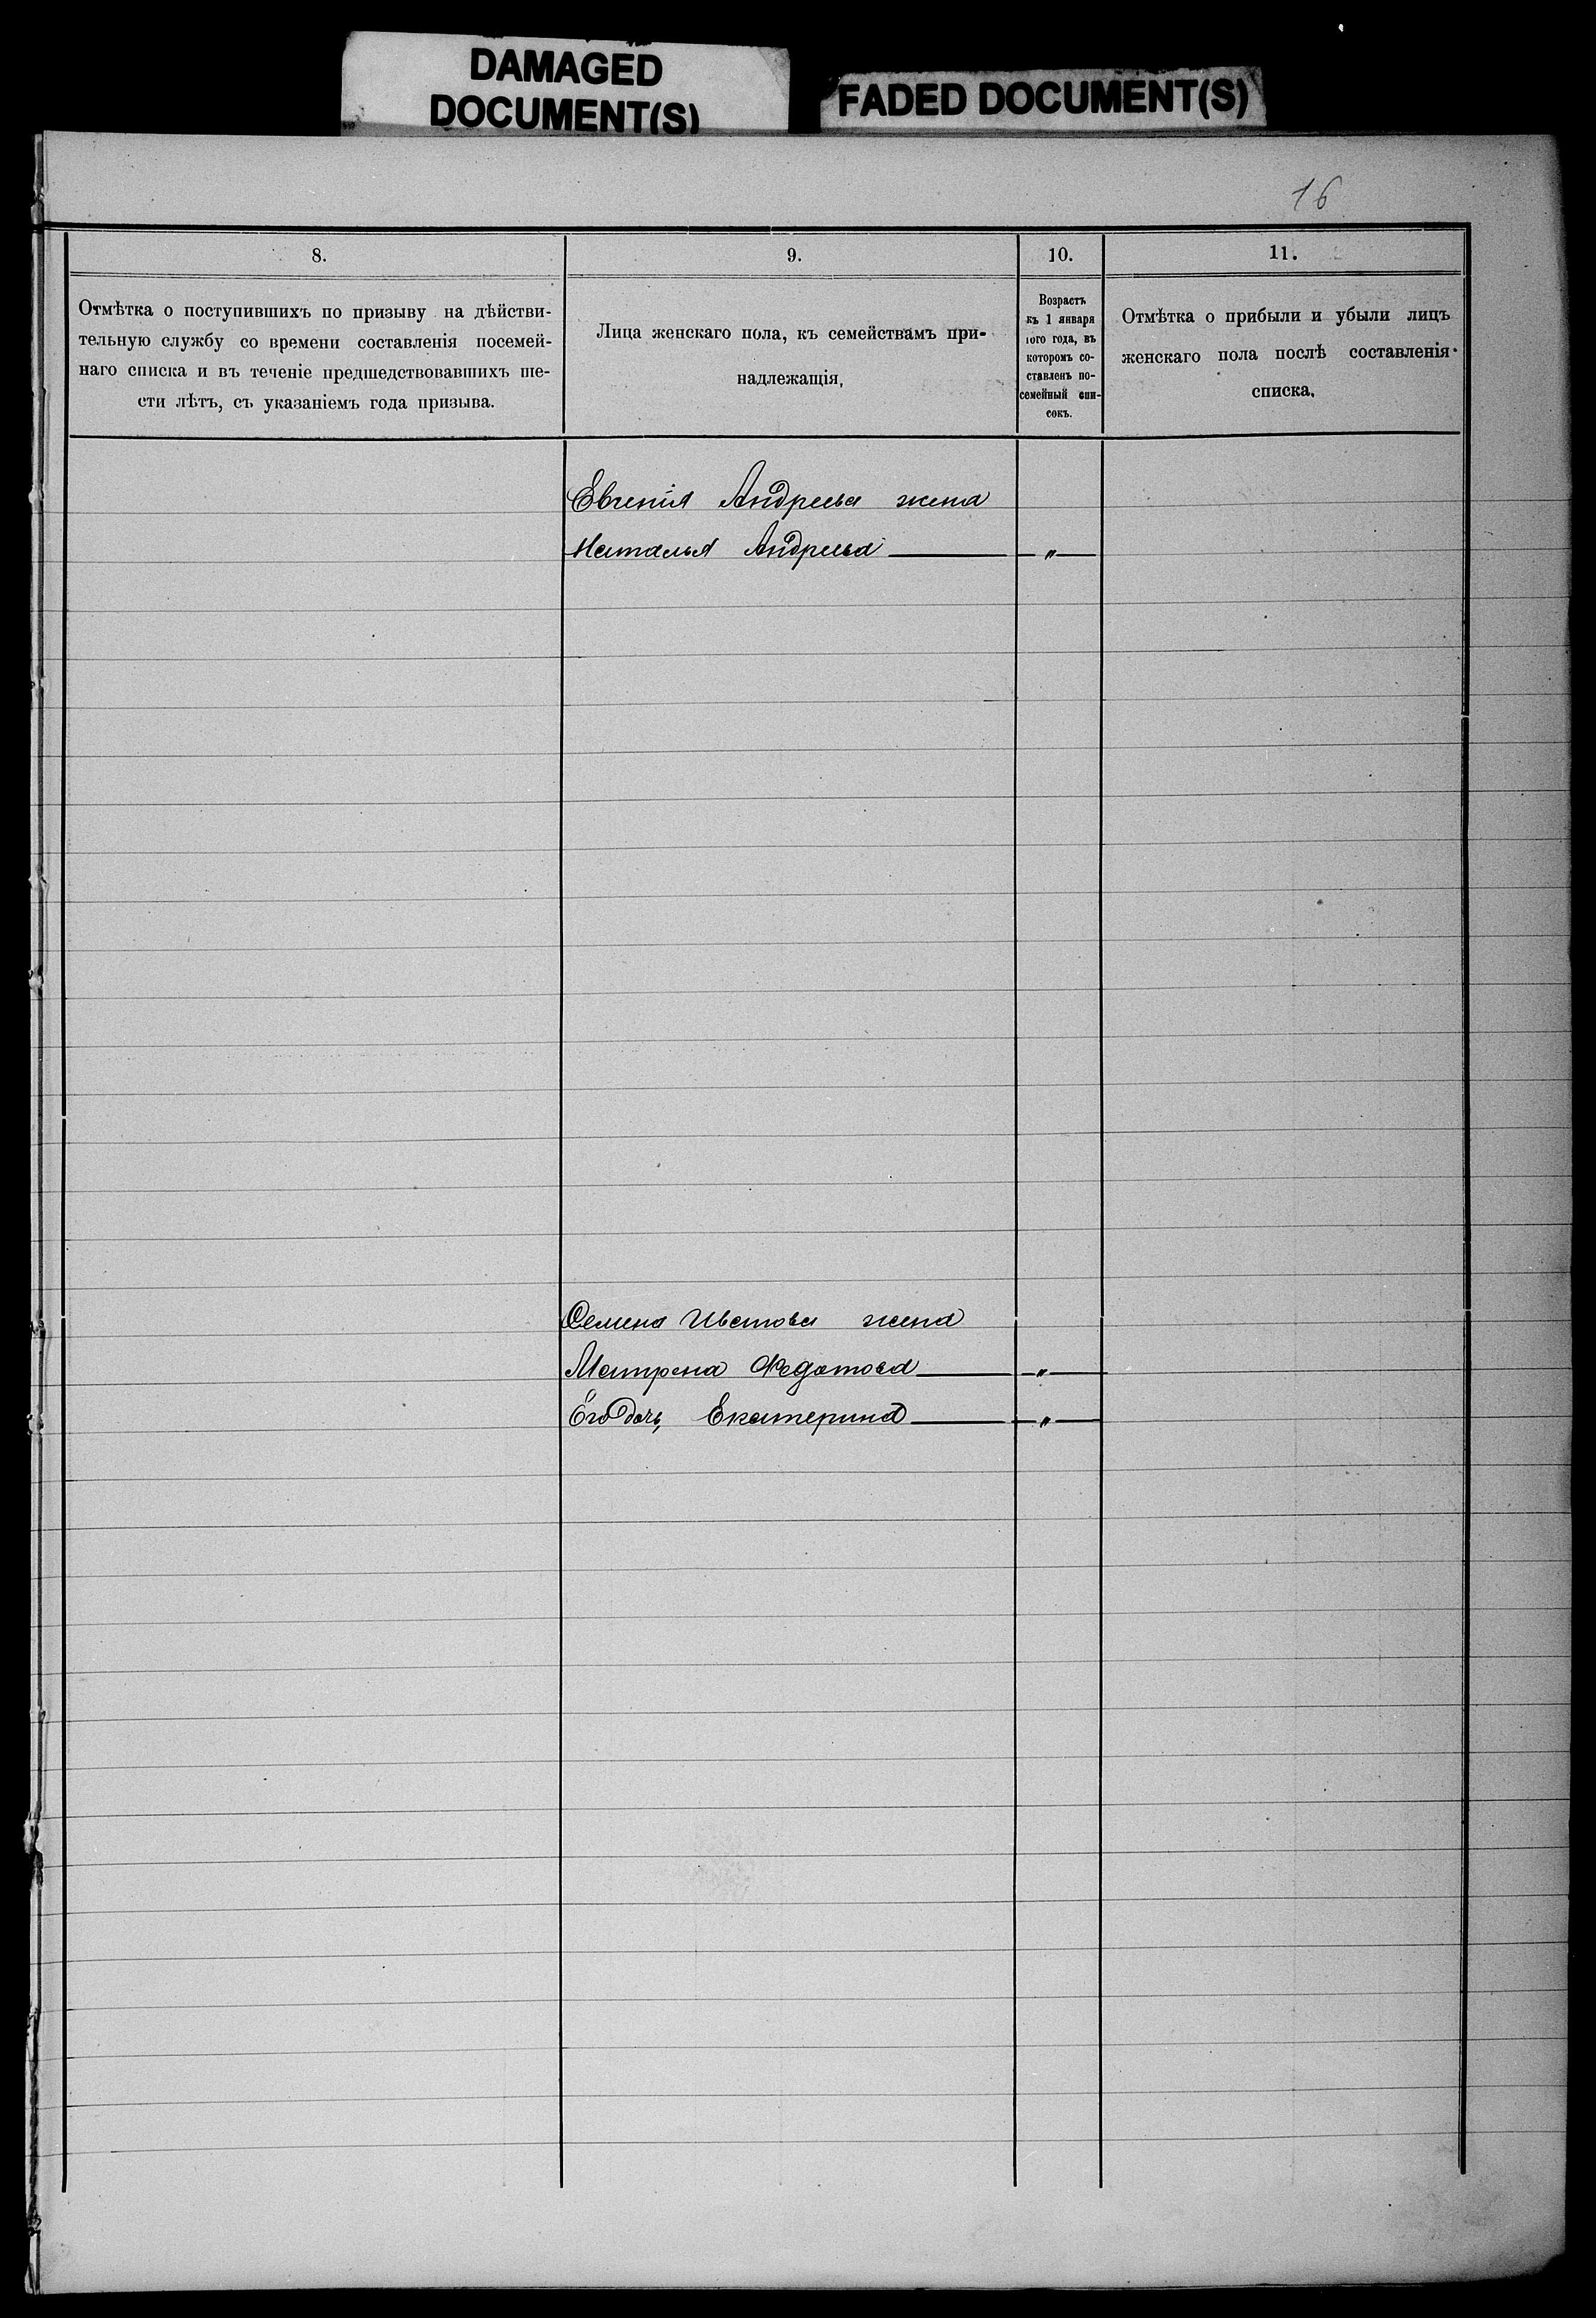 DAMAGED
DOCUMENT(S)
FADED DOCUMENT(S)
16
8.
9.
10.
11.
Отмѣтка о поступившихъ по призыву на дѣйстви-
тельную службу со времени составленія посемей-
наго списка и въ теченіе предшедствовавшихъ ше-
сти лѣтъ, съ указаніемъ года призыва.
Лица женскаго пола, къ семействамъ при-
надлежащія,
Возрастъ
къ 1 января
того года, въ
которомъ со-
ставленъ по-
семейный спи-
сокъ.
Отмѣтка о прибыли и убыли лицъ
женскаго пола послѣ составленія
списка.
Евгенія Андреева жена
Наталья Андреева — „ —
Семена Иватова жена
Матрена Федотова — „ —
Его дочь, Екатерина — „ —